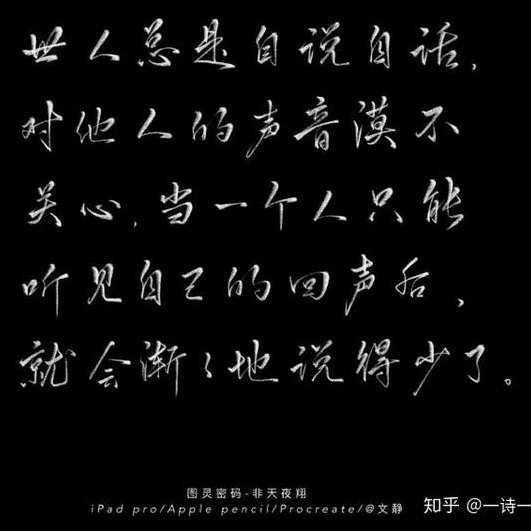 世人总是自说自话，
对他人的声音漠不
关心，当一个人只能
听见自己的回声后，
就会渐々地说得少了。
图灵密码-非天夜翔
iPad pro/Apple pencil/Procreate/@文静
知乎 @一诗一